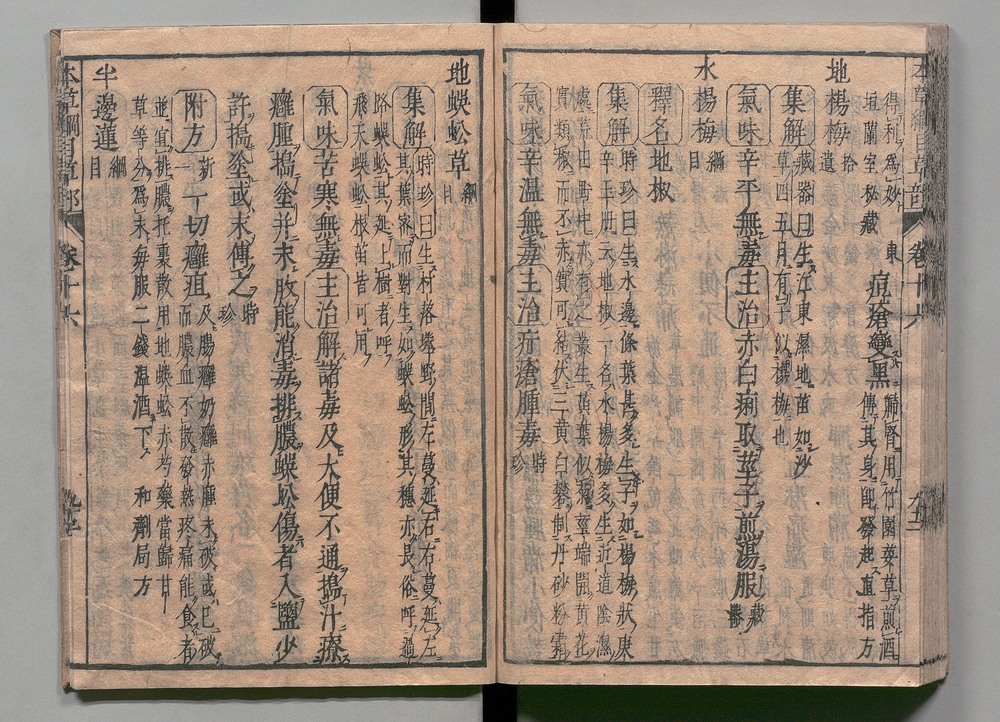 得利爲妙
垣蘭室秘藏
東
痘瘡變黑
歸腎用竹園荽草煎酒
傅其身卽發起直指方
地楊梅
拾
遺
集解
藏器曰生江東濕地苗如沙
草四五月有子似楊梅也
氣味辛平無毒主治赤白痢取莖子煎湯服
藏
器
水楊梅
綱
目
釋名地椒
集解
時珍曰生水邊條葉甚多生子如楊梅狀庚
辛玉冊云地椒一名水楊梅多生近道陰濕
處荒田野中亦有之叢生苗葉似菊莖端開黃花
實類椒而不赤實可結伏三黃白礬制丹砂粉霜
氣味辛温無毒主治疔瘡腫毒
時
珍
地蜈蚣草
綱
目
集解
時珍曰生村落塍野間左蔓延右右蔓延左
其葉密而對生如蜈蚣形其穗亦長俗呼過
路蜈蚣其延上樹者呼
飛天蜈蚣根苗皆可用
氣味苦寒無毒主治解諸毒及大便不通搗汁療
癰腫搗塗并末服能消毒排膿蜈蚣傷者入鹽少
許搗塗或末傅之
時
珍
附方
新
一
一切癰疽
及腸癰奶癰赤腫未破或已破
而膿血不散發熱疼痛能食者
並宜排膿托裏散用地蜈蚣赤芍藥當歸甘
草等分爲末每服二錢温酒下
和劑局方
半邊蓮
綱
目
本草綱目草部
卷十六